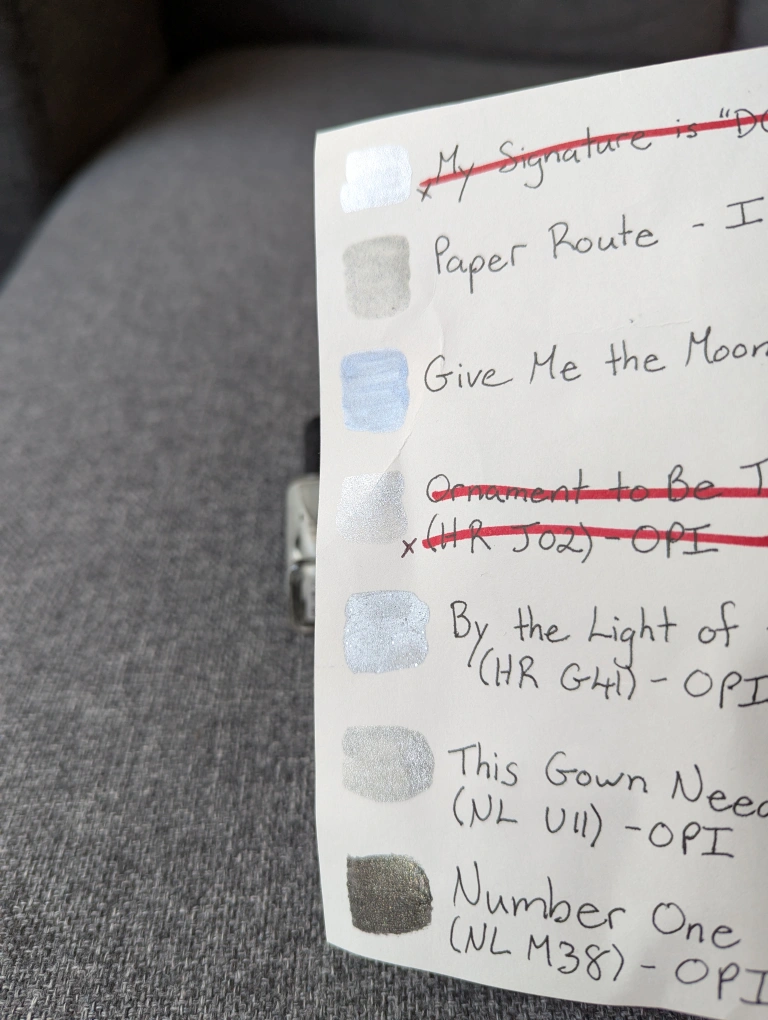 My Signature is "DC
Paper Route - I
Give Me the Moon
Ornament to Be T
x (HR J02) - OPI
By the Light of
(HR G41) - OPI
This Gown Need
(NL U11) - OPI
Number One
(NL M38) - OPI